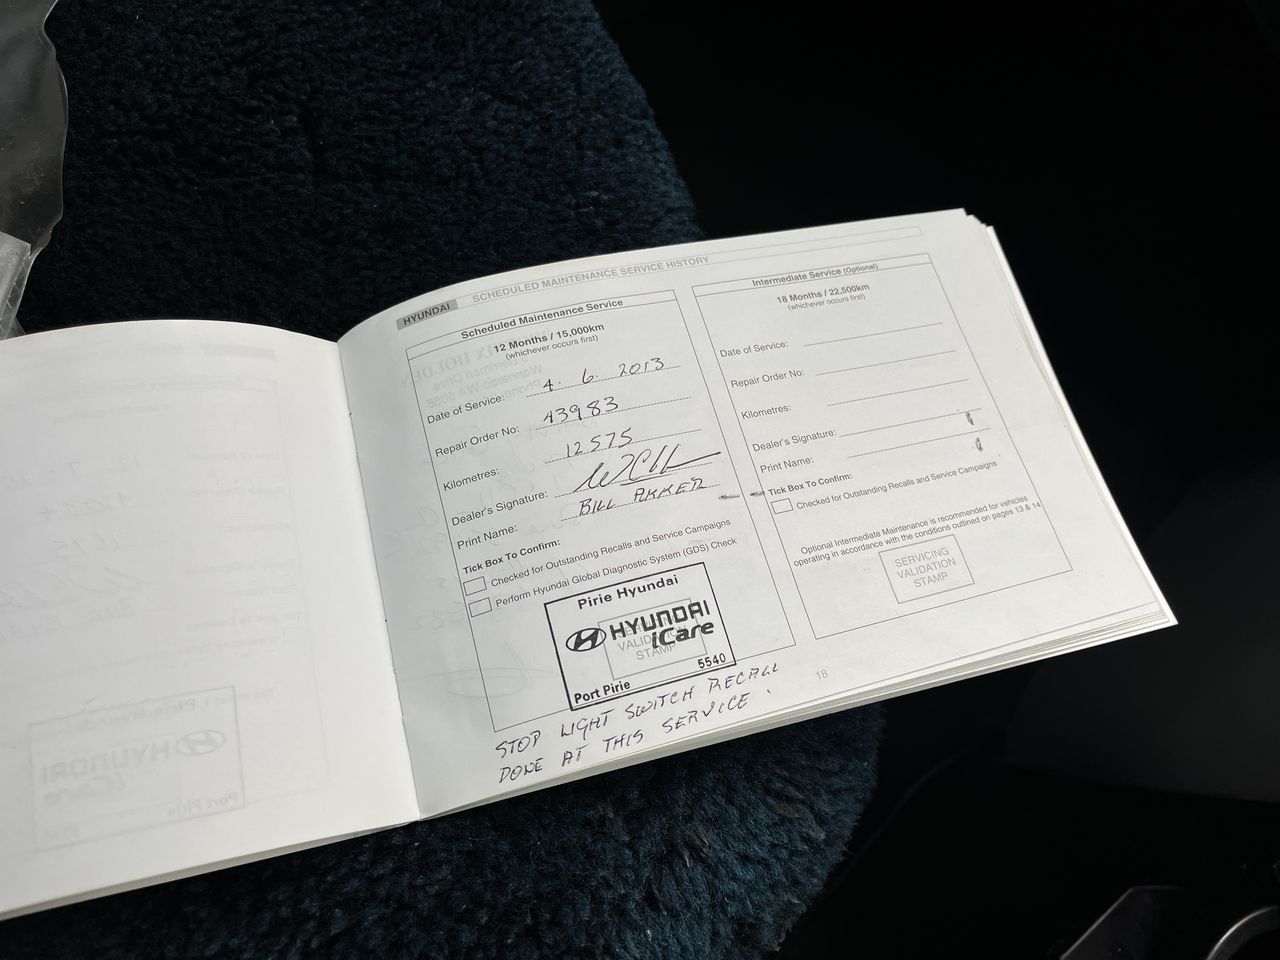 HYUNDAI SCHEDULED MAINTENANCE SERVICE HISTORY
Scheduled Maintenance Service
12 Months / 15,000km
(whichever occurs first)
Date of Service: 4. 6. 2013
Repair Order No: 43983
Kilometres: 12575
Dealer's Signature:
Print Name: BILL AKKER
Tick Box To Confirm:
Checked for Outstanding Recalls and Service Campaigns
Perform Hyundai Global Diagnostic System (GDS) Check
Pirie Hyundai
HYUNDAI
iCare
VALIDATION
STAMP
5540
Port Pirie
STOP LIGHT SWITCH RECALL
DONE AT THIS SERVICE.
Intermediate Service (Optional)
18 Months / 22,500km
(whichever occurs first)
Date of Service:
Repair Order No:
Kilometres:
Dealer's Signature:
Print Name:
Tick Box To Confirm:
Checked for Outstanding Recalls and Service Campaigns
Optional Intermediate Maintenance is recommended for vehicles
operating in accordance with the conditions outlined on pages 13 & 14
SERVICING
VALIDATION
STAMP
18